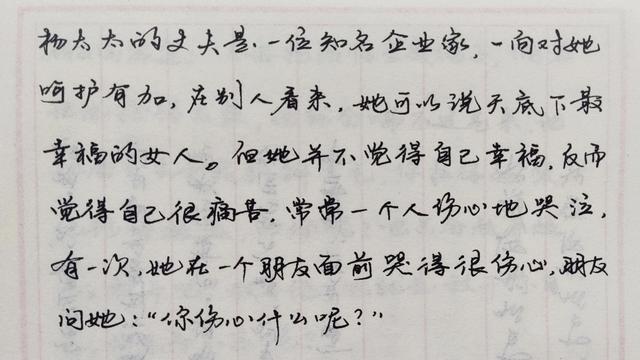 杨太太的丈夫是一位知名企业家,一向对她
呵护有加,在别人看来,她可以说天底下最
幸福的女人。但她并不觉得自己幸福,反而
觉得自己很痛苦,常常一个人伤心地哭泣,
有一次,她在一个朋友面前哭得很伤心,朋友
问她:“你伤心什么呢?”